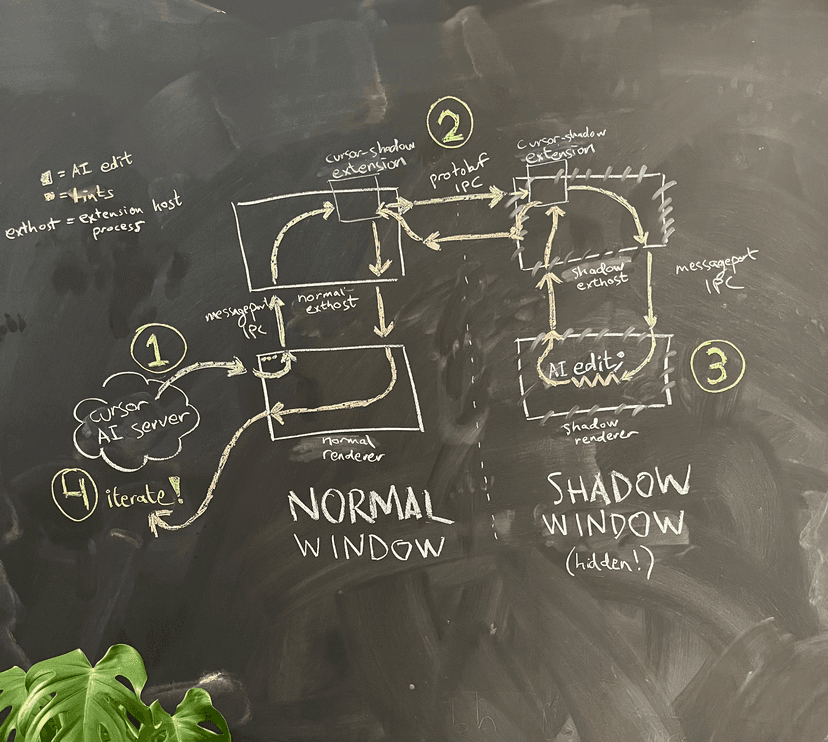 = AI edit
= lints
exthost = extension host
process
2
cursor-shadow
extension
protobuf
IPC
cursor-shadow
extension
messageport
IPC
normal
exthost
shadow
exthost
messageport
IPC
1
cursor
AI server
AI edit;
3
normal
renderer
shadow
renderer
4 iterate!
NORMAL
WINDOW
SHADOW
WINDOW
(hidden!)